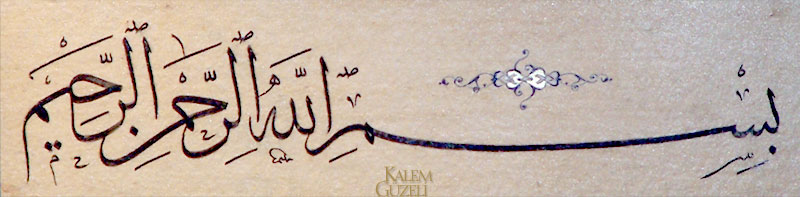 بِسْمِ اللّٰهِ الرَّحْمٰنِ الرَّحِيمِ
KALEM
GUZELI